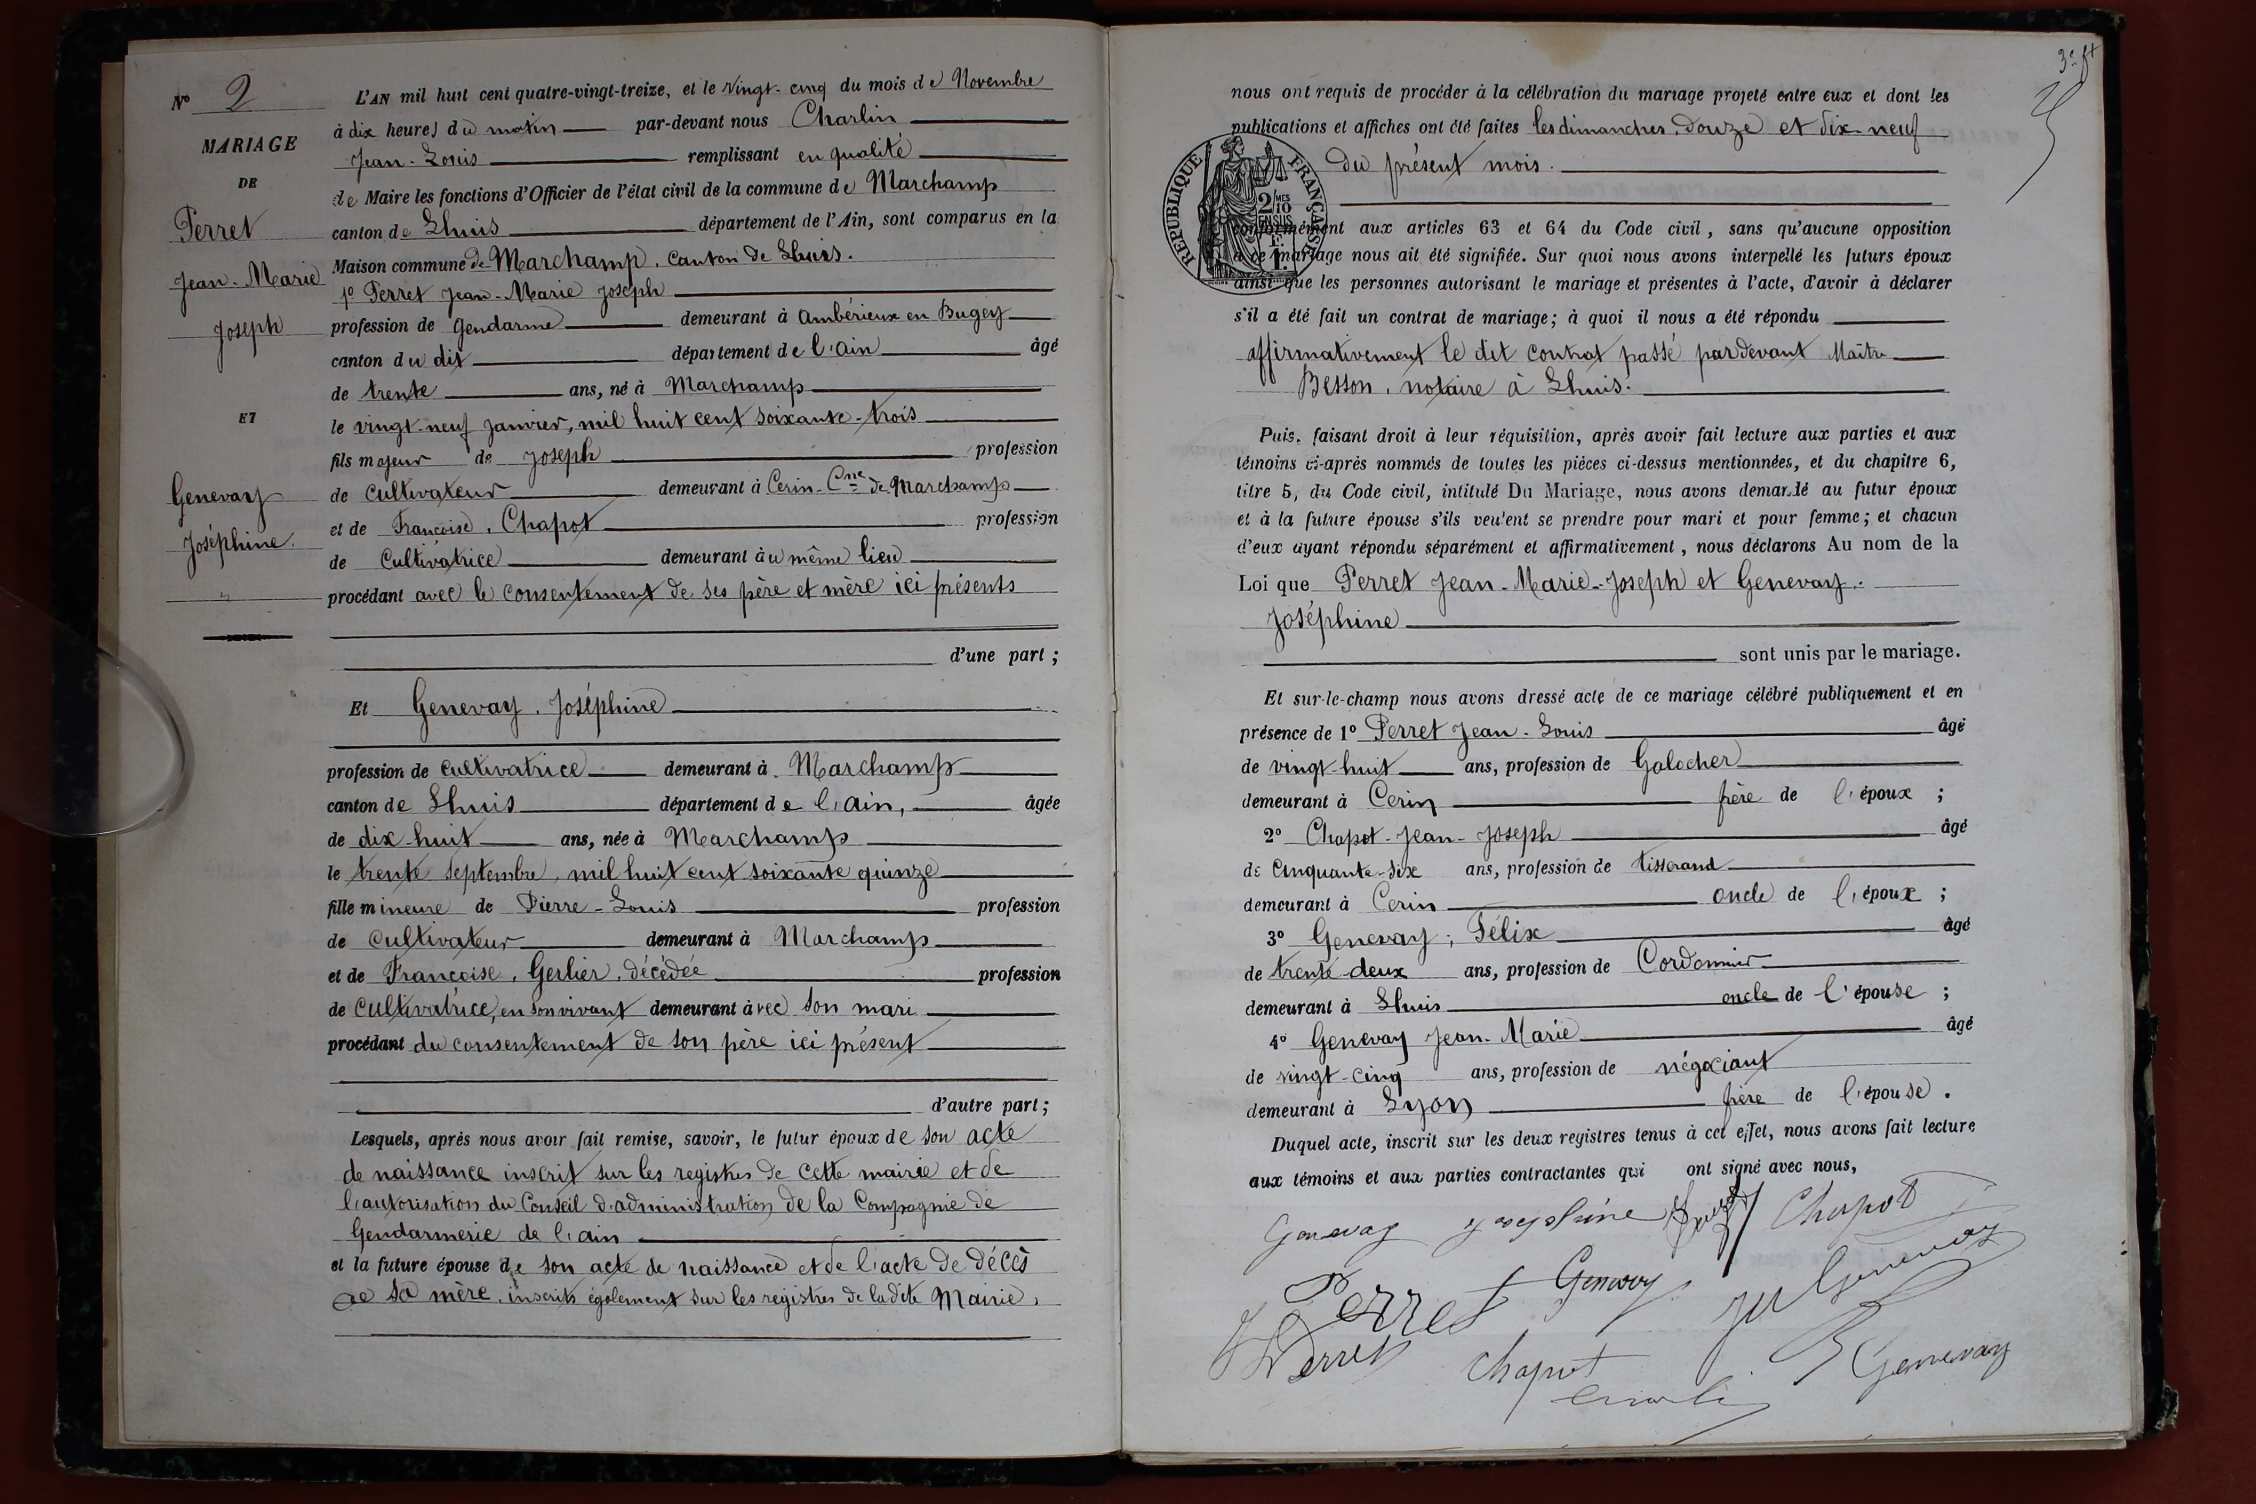 N° 2
MARIAGE
DE
Perret
Jean-Marie
Joseph
ET
Genevay
Joséphine.
L'AN mil huit cent quatre-vingt-treize, et le vingt-cinq du mois de Novembre
à dix heures du matin par-devant nous Charlin
Jean-Louis remplissant en qualité
de Maire les fonctions d'Officier de l'état civil de la commune de Marchamp
canton de Lhuis département de l'Ain, sont comparus en la
Maison commune de Marchamp, canton de Lhuis.
1° Perret Jean-Marie Joseph
profession de Gendarme demeurant à Ambérieux en Bugey
canton du dit département de l'Ain âgé
de trente ans, né à Marchamp
le vingt-neuf Janvier, mil huit cent soixante-trois
fils majeur de Joseph profession
de Cultivateur demeurant à Cerin-Cne de Marchamp
et de Françoise, Chapot profession
de Cultivatrice demeurant au même lieu
procédant avec le consentement de ses père et mère ici présents
d'une part ;
Et Genevay, Joséphine
profession de Cultivatrice demeurant à Marchamp
canton de Lhuis département de l'Ain, âgée
de dix-huit ans, née à Marchamp
le trente Septembre, mil huit cent soixante quinze
fille mineure de Pierre-Louis profession
de Cultivateur demeurant à Marchamp
et de Françoise, Gerlier, décédée profession
de Cultivatrice, en son vivant demeurant avec son mari
procédant du consentement de son père ici présent
d'autre part ;
Lesquels, après nous avoir fait remise, savoir, le futur époux de son acte
de naissance inscrit sur les registres de cette mairie et de
l'autorisation du Conseil d'administration de la Compagnie de
Gendarmerie de l'ain
et la future épouse de son acte de naissance et de l'acte de décès
de sa mère, inscrits également sur les registres de la dite Mairie,
nous ont requis de procéder à la célébration du mariage projeté entre eux et dont les
publications et affiches ont été faites les dimanches, douze et dix-neuf
du présent mois.
RÉPUBLIQUE FRANÇAISE
2/10 MES
EN SUS
1F.
conformément aux articles 63 et 64 du Code civil, sans qu'aucune opposition
à ce mariage nous ait été signifiée. Sur quoi nous avons interpellé les futurs époux
ainsi que les personnes autorisant le mariage et présentes à l'acte, d'avoir à déclarer
s'il a été fait un contrat de mariage ; à quoi il nous a été répondu
affirmativement le dit contrat passé pardevant Maître
Besson, notaire à Lhuis.
Puis, faisant droit à leur réquisition, après avoir fait lecture aux parties et aux
témoins ci-après nommés de toutes les pièces ci-dessus mentionnées, et du chapitre 6,
titre 5, du Code civil, intitulé Du Mariage, nous avons demandé au futur époux
et à la future épouse s'ils veulent se prendre pour mari et pour femme ; et chacun
d'eux ayant répondu séparément et affirmativement, nous déclarons Au nom de la
Loi que Perret Jean-Marie-Joseph et Genevay.
Joséphine
sont unis par le mariage.
Et sur-le-champ nous avons dressé acte de ce mariage célébré publiquement et en
présence de 1° Perret Jean-Louis âgé
de vingt-huit ans, profession de Galocher
demeurant à Cerin frère de l'époux ;
2° Chapot-Jean-Joseph âgé
de Cinquante-Six ans, profession de tisserand
demeurant à Cerin oncle de l'époux ;
3° Genevay, Félix âgé
de trente-deux ans, profession de Cordonnier
demeurant à Lhuis oncle de l'épouse ;
4° Genevay Jean-Marie âgé
de vingt-cinq ans, profession de négociant
demeurant à Lyon frère de l'épouse.
Duquel acte, inscrit sur les deux registres tenus à cet effet, nous avons fait lecture
aux témoins et aux parties contractantes qui ont signé avec nous,
Genevay Josephine Chapot
Perret Genevay JM Genevay
Perret Chapot Genevay